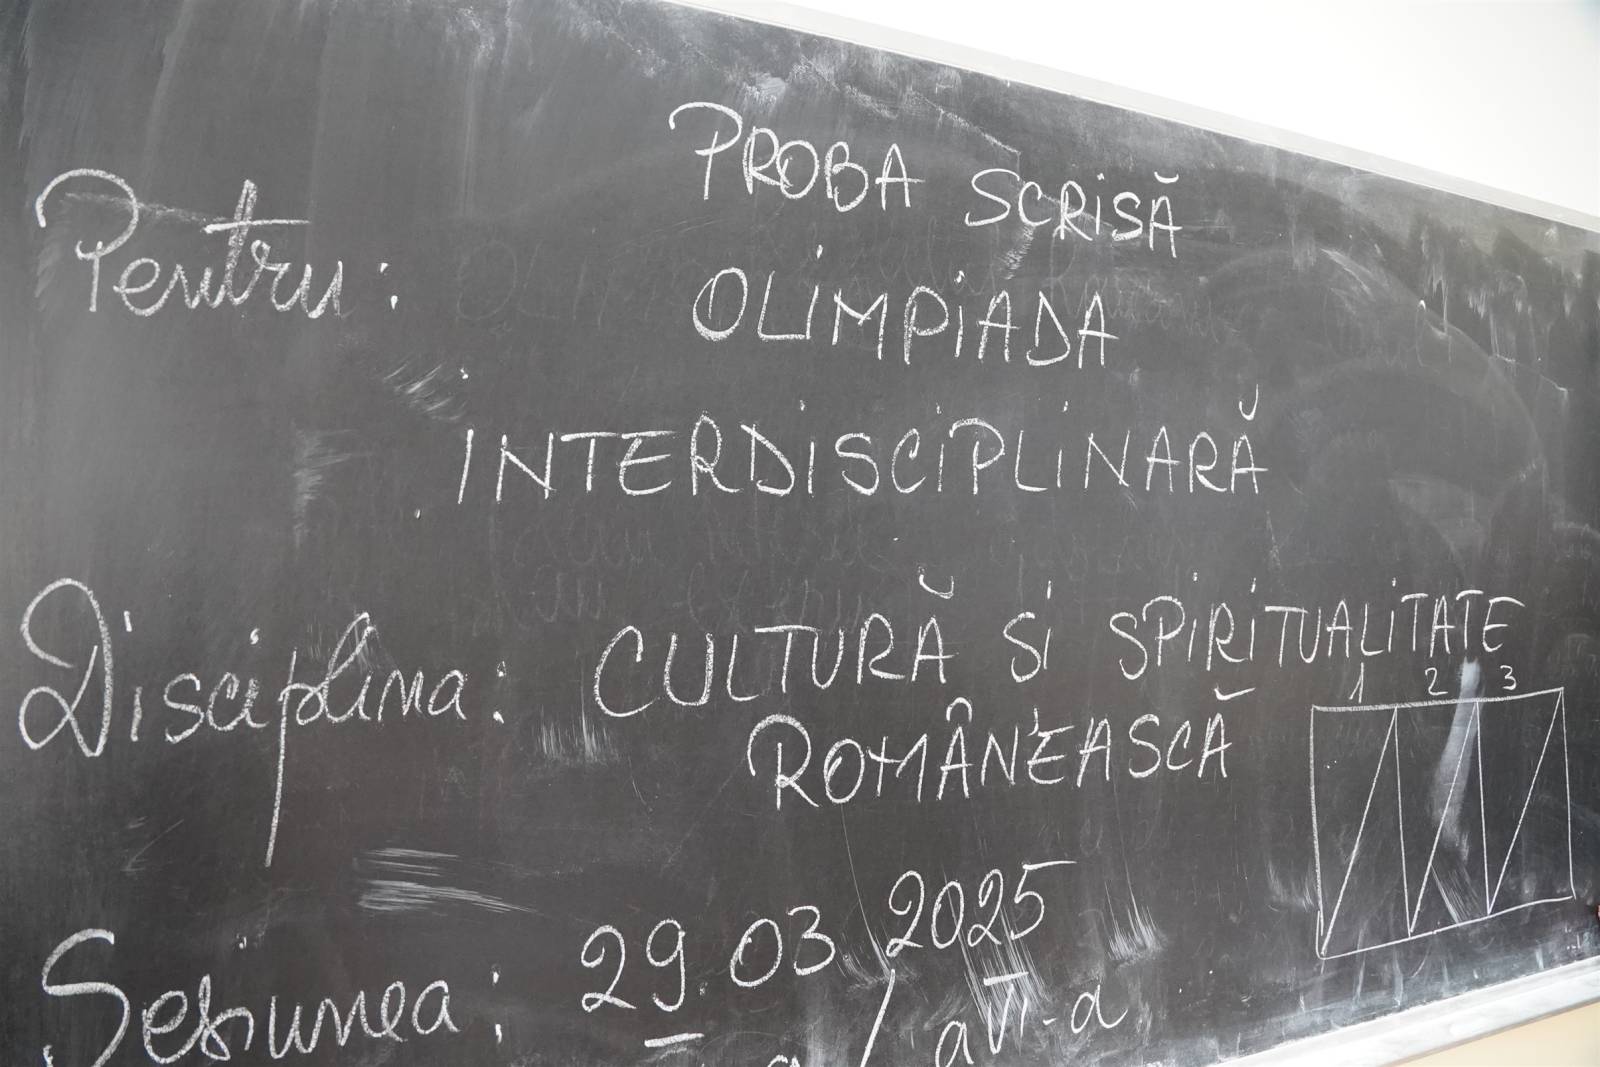 PROBA SCRISĂ
Pentru: OLIMPIADA
INTERDISCIPLINARĂ
Disciplina: CULTURĂ SI SPIRITUALITATE
ROMÂNEASCĂ
1 2 3
Sesiunea: 29.03.2025
a VI-a